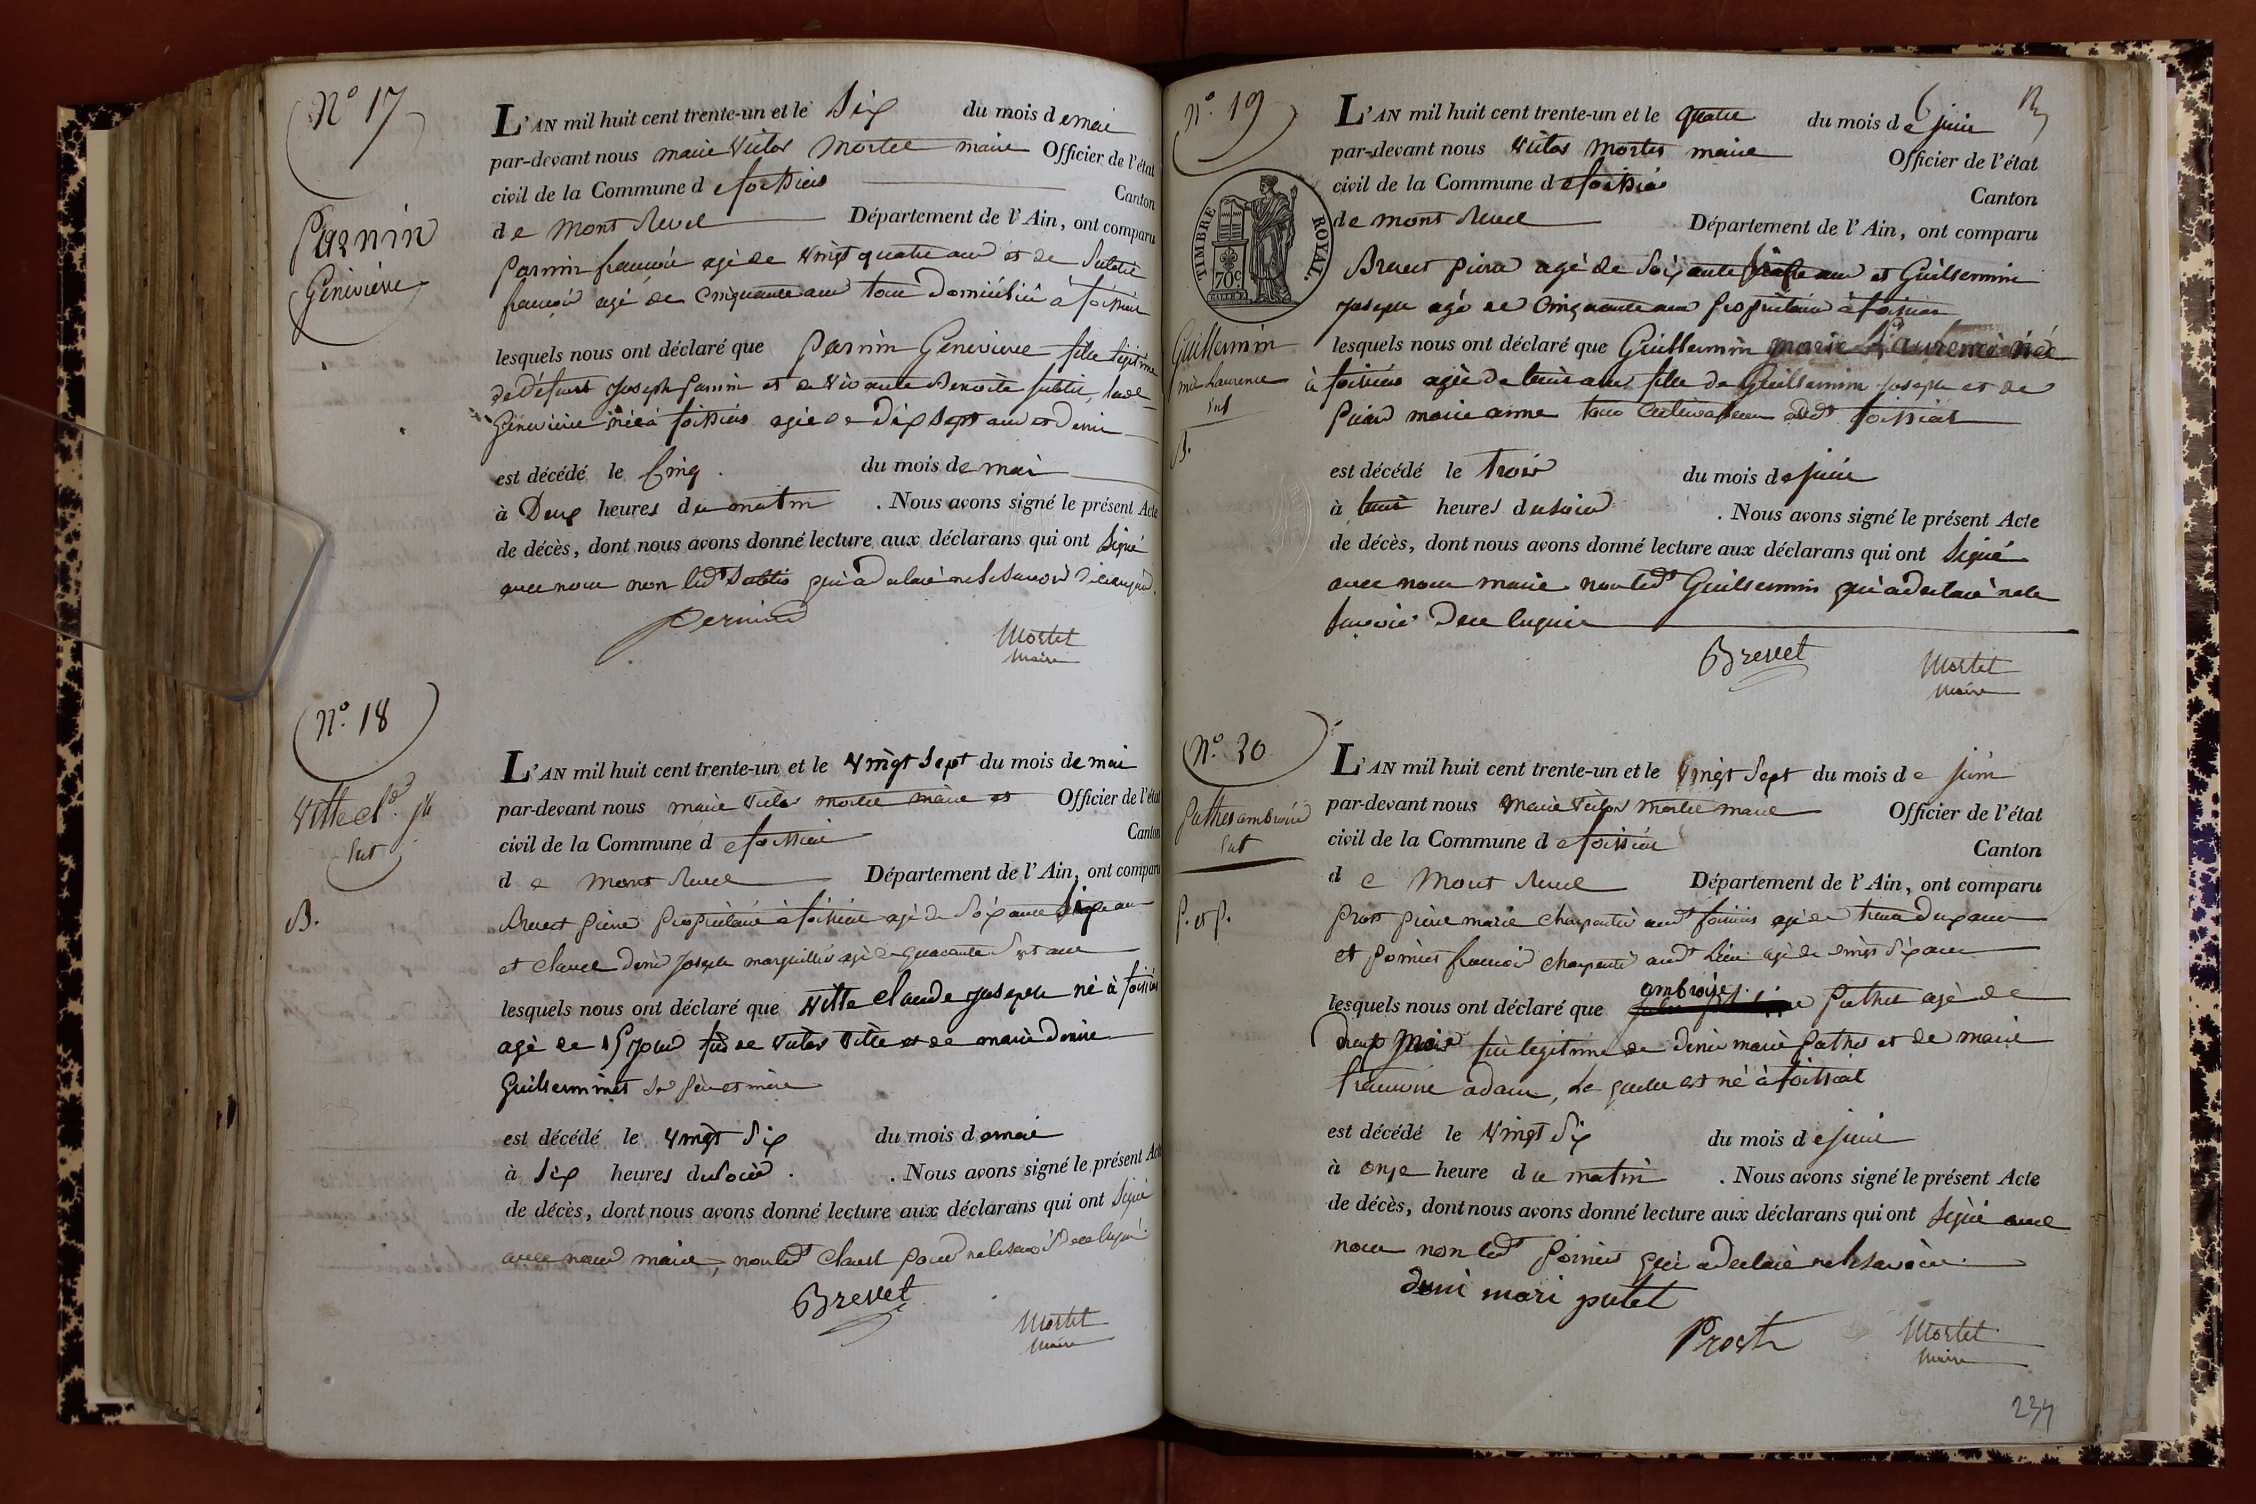 N° 17
Parnin
Geneviève
L'AN mil huit cent trente-un et le Six du mois de mai
par-devant nous marie Victor Mortet maire Officier de l'état
civil de la Commune de foissiat Canton
de Mont Revel Département de l'Ain, ont comparu
Parnin françois agé de vingt quatre ans et de Subtil
françois agé de Cinquante ans tous domiciliés à foissiat
lesquels nous ont déclaré que Parnin Genevieve fille légitime
de défunt Joseph Parnin et de vivante Benoite subtil, lad.
Geneviève née à foissiat agée de Dix sept ans et demi
est décédé le Cinq du mois de mai
à Deux heures du matin . Nous avons signé le présent Acte
de décès, dont nous avons donné lecture aux déclarans qui ont signé
avec nous non led. Subtil qui a déclaré ne le savoir de ce enquis.
Pernin
Mortet
Maire
N°. 18
Vitte Cl. Jh
Enf
B.
L'AN mil huit cent trente-un et le vingt sept du mois de mai
par-devant nous marie Victor mortet maire et Officier de l'état
civil de la Commune de foissiat Canton
de Mont Revel Département de l'Ain, ont comparu
Brevet pierre propriétaire à foissiat agé de Soixante ans
et Claude denis Joseph marguillier agé de quarante sept ans
lesquels nous ont déclaré que Vitte Claude Joseph né à foissiat
agé de 15 jours fils de Victor Vitte et de marie denise
Guillerminet ses père et mère
est décédé le vingt Six du mois de mai
à six heures du Soir . Nous avons signé le présent Acte
de décès, dont nous avons donné lecture aux déclarans qui ont signé
avec nous maire, non led. Clavel pour ne le savoir de ce enquis
Brevet
Mortet
Maire
6
N°. 19
TIMBRE ROYAL
70c
Guillermin
mie Laurence
Enf
B.
L'AN mil huit cent trente-un et le quatre du mois de juin
par-devant nous Victor Mortet maire Officier de l'état
civil de la Commune de foissiat Canton
de mont Revel Département de l'Ain, ont comparu
Brevet pierre agé de Soixante ans et Guillermin
Joseph agé de Cinquante ans propriétaires à foissiat
lesquels nous ont déclaré que Guillermin marie Laurence née
à foissiat agée de trois ans fille de Guillermin Joseph et de
marie anne tous Cultivateurs aud. foissiat
est décédé le trois du mois de juin
à heures du soir . Nous avons signé le présent Acte
de décès, dont nous avons donné lecture aux déclarans qui ont Signé
avec nous maire non led. Guillermin qui a déclaré ne le
savoir De ce enquis
Brevet
Mortet
Maire
N°. 20
Puthet ambroise
Enf
P. et P.
L'AN mil huit cent trente-un et le vingt Sept du mois de juin
par-devant nous Marie Victor Mortet maire Officier de l'état
civil de la Commune de foissiat Canton
de Mont Revel Département de l'Ain, ont comparu
Prost pierre marie charpentier aud. foissiat agé de trente deux ans
et françois charpentier aud. lieu agé de vingt Six ans
ambroise
lesquels nous ont déclaré que Puthet agé de
deux mois fils légitime de denis marie Puthet et de marie
françoise adam, Lequel est né à foissiat
est décédé le vingt Six du mois de juin
à onze heure du matin . Nous avons signé le présent Acte
de décès, dont nous avons donné lecture aux déclarans qui ont signé avec
nous non led. qui a déclaré ne le savoir.
deni mari putet
Prost
Mortet
Maire
234